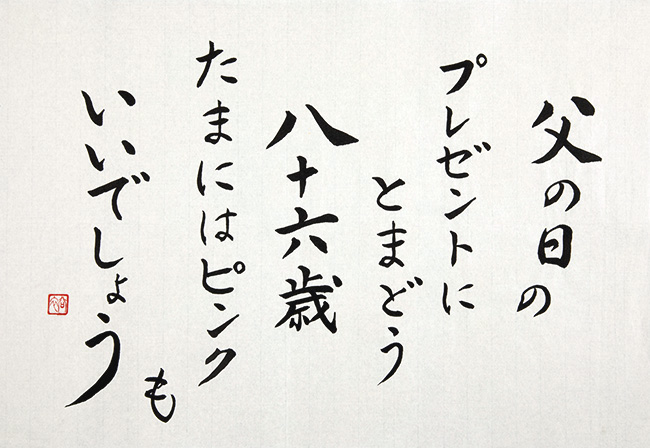 父の日の
プレゼントに
とまどう
八十六歳
たまにはピンク
も
いいでしょう